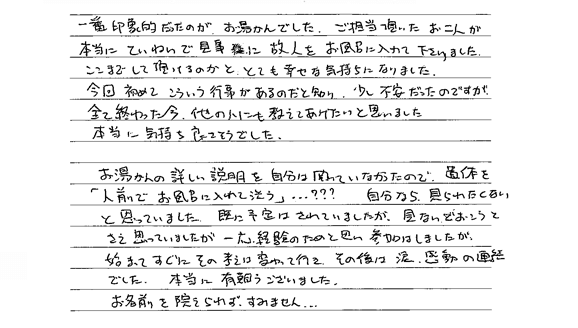 一番印象的だったのが、お湯かんでした。ご担当頂いたお二人が
本当にていねいで見事に故人をお風呂に入れて下さいました。
ここまでして頂けるのかと、とても幸せな気持ちになりました。
今回初めてこういう行事があるのだと知り、少し不安だったのですが
全て終わった今、他の人にも教えてあげたいと思いました
本当に気持ち良さそうでした。
お湯かんの詳しい説明を自分は聞いていなかたので、遺体を
「人前でお風呂に入れて洗う」…??? 自分なら、見られたくない
と思っていました。既に予定はされていましたが、見ないでおこうと
さえ思っていましたが一応、経験のためと思い参加はしましたが、
始まってすぐにその考えは変わって行き、その後は涙、感動の連続
でした。本当に有難うございました。
お名前を覚えられず、すみません…